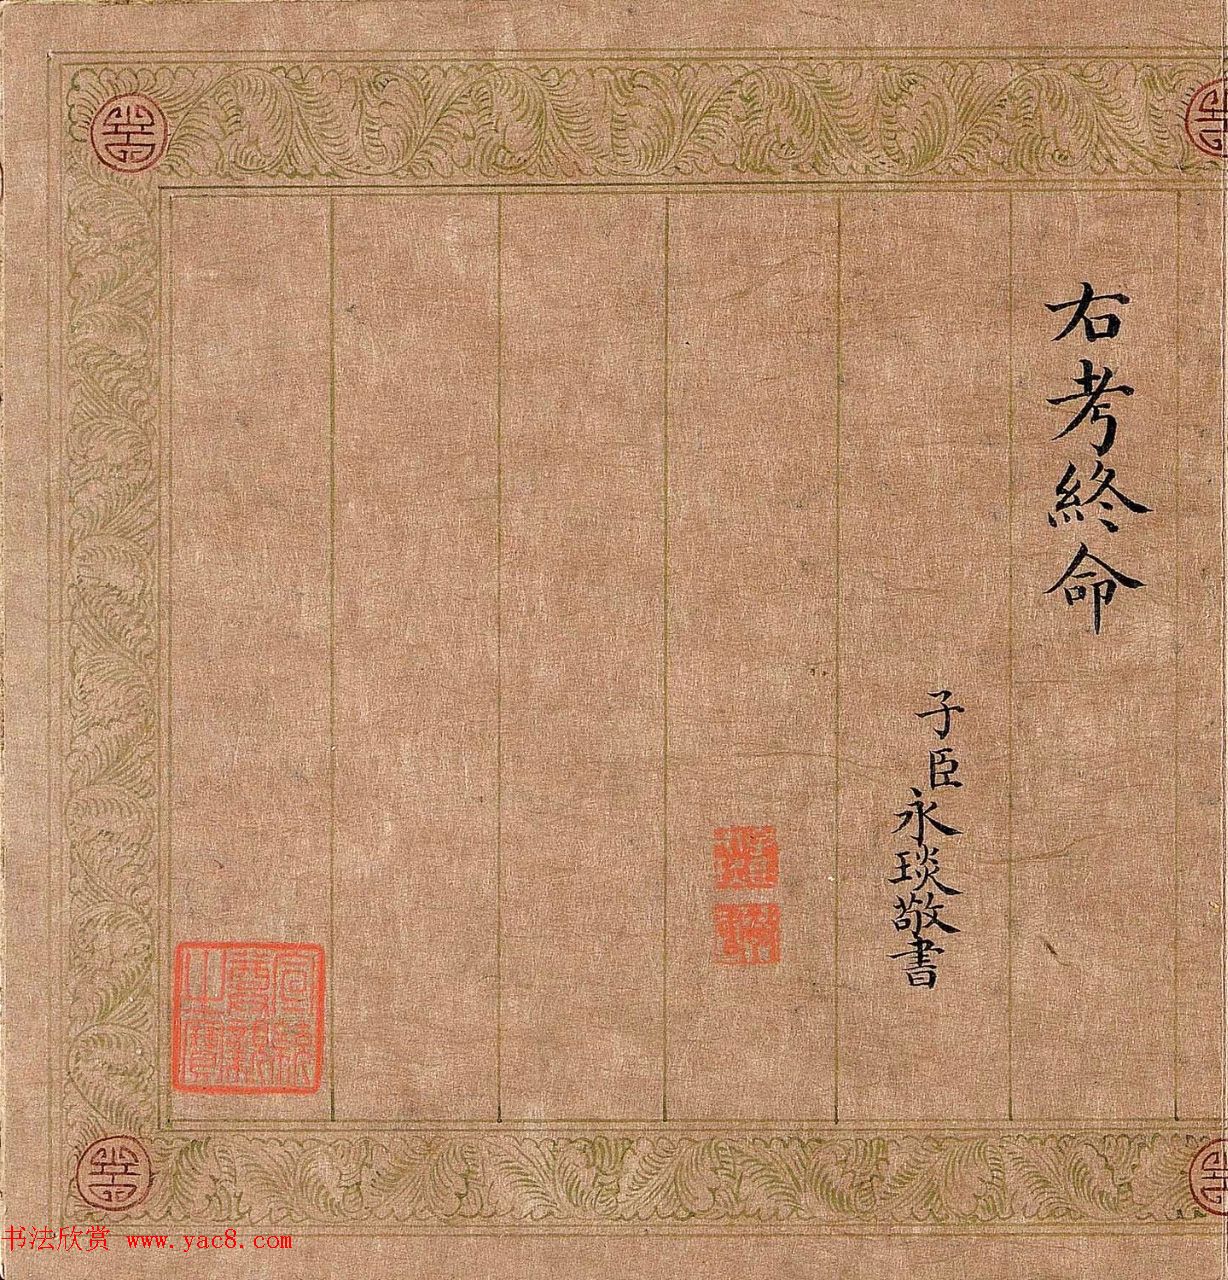 右考終命
子臣永琰敬書
宣統御覽之寶
书法欣赏 www.yac8.com